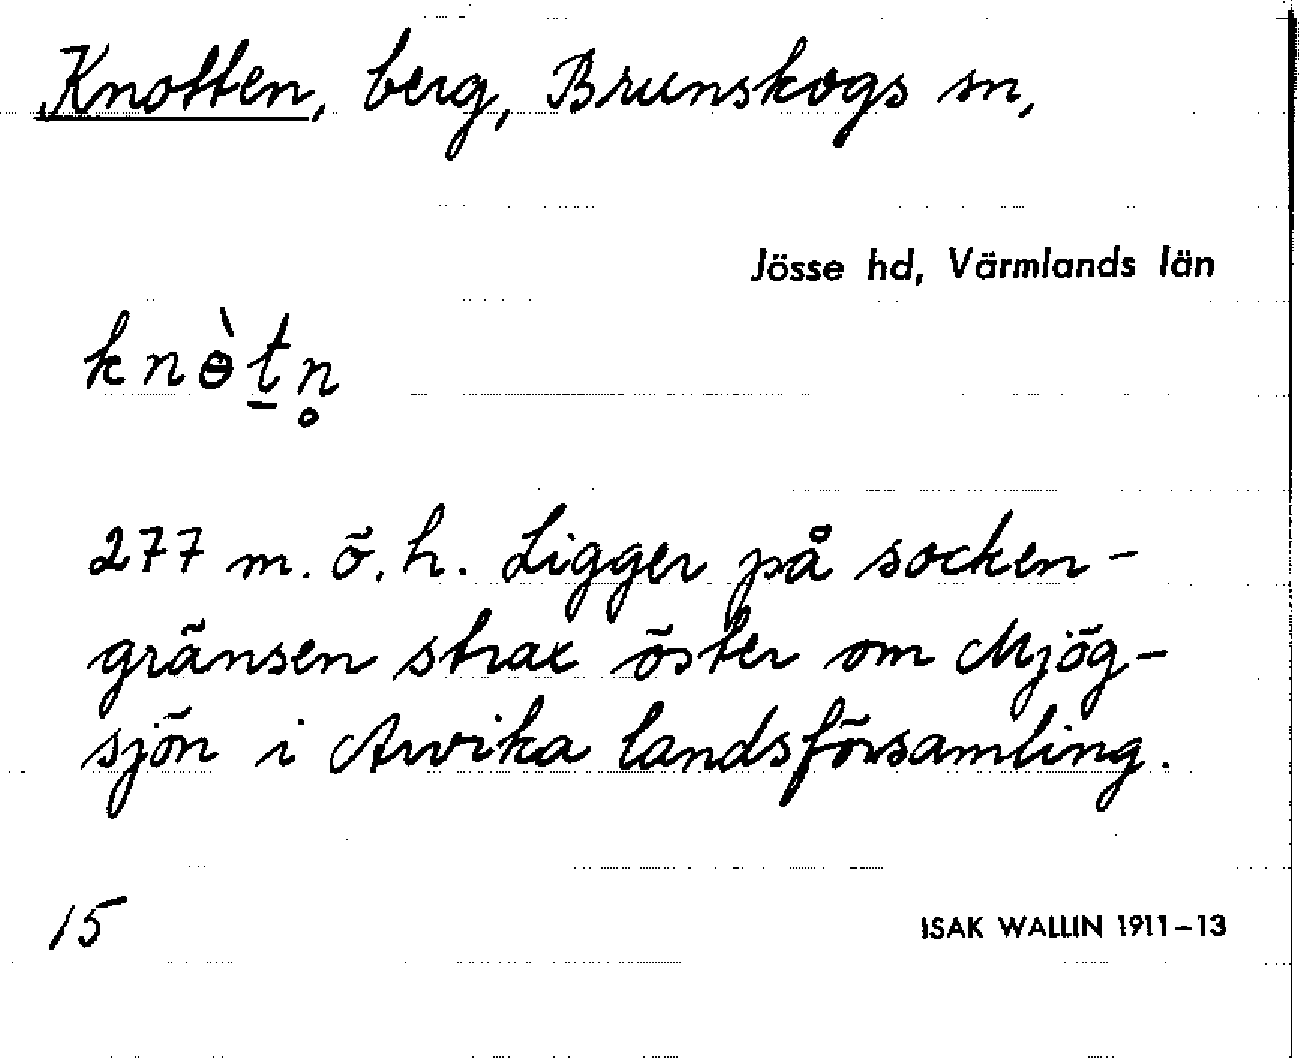 Knotten, berg, Brunskogs sn,
Jösse hd, Värmlands län
knɵ̀t̠n̥
277 m. ö. h. Ligger på socken-
gränsen strax öster om Mjög-
sjön i Arvika landsförsamling.
15
ISAK WALLIN 1911–13